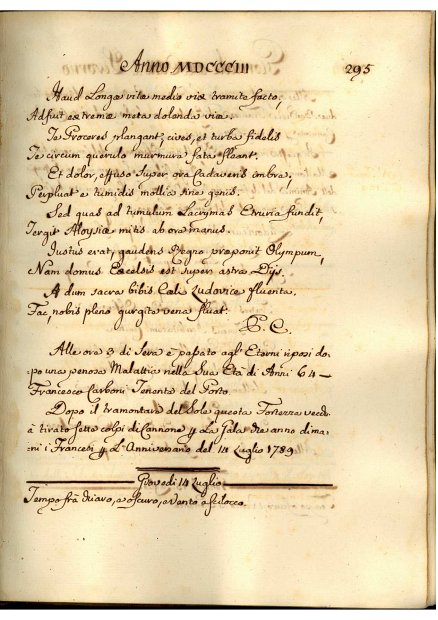 Anno MDCCCIII 295
Haud Longæ vitæ medio vix tramite facto,
Adfuit extremæ meta dolenda viæ.
Te Proceres plangant, cives, et turba fidelis
Te circum querulo murmura fata fleant.
Et dolor, effuso Super ora Cadaveris ombra,
Perpluat e tumidis mollia rine genis.
Sed quas ad tumulum Lacrymas Etruria fundit,
Tergit Aloysia mitis ab ora manus.
Iustus erat, gaudens Regno præponit Olympum,
Nam domus Excelsis est super astra Dijs.
At dum sacra bibis Cæli Ludovice fluenta.
Fac, nobis pleno gurgite vena fluat.
P. C.
Alle ore 3 di Sera è passato agl' Eterni riposi do-
po una penosa Malattia nella Sua Età di Anni 64 —
Francesco Carboni Tenente del Porto.
Dopo il tramontare del Sole questa Fortezza vecch
à tirato sette colpi di Cannone p La Gala che anno dima-
ni i Francesi p L'Anniversario del 14 Luglio 1789
Giovedi 14 Luglio
Tempo frà chiaro, e oscuro, e Vento a scilocco